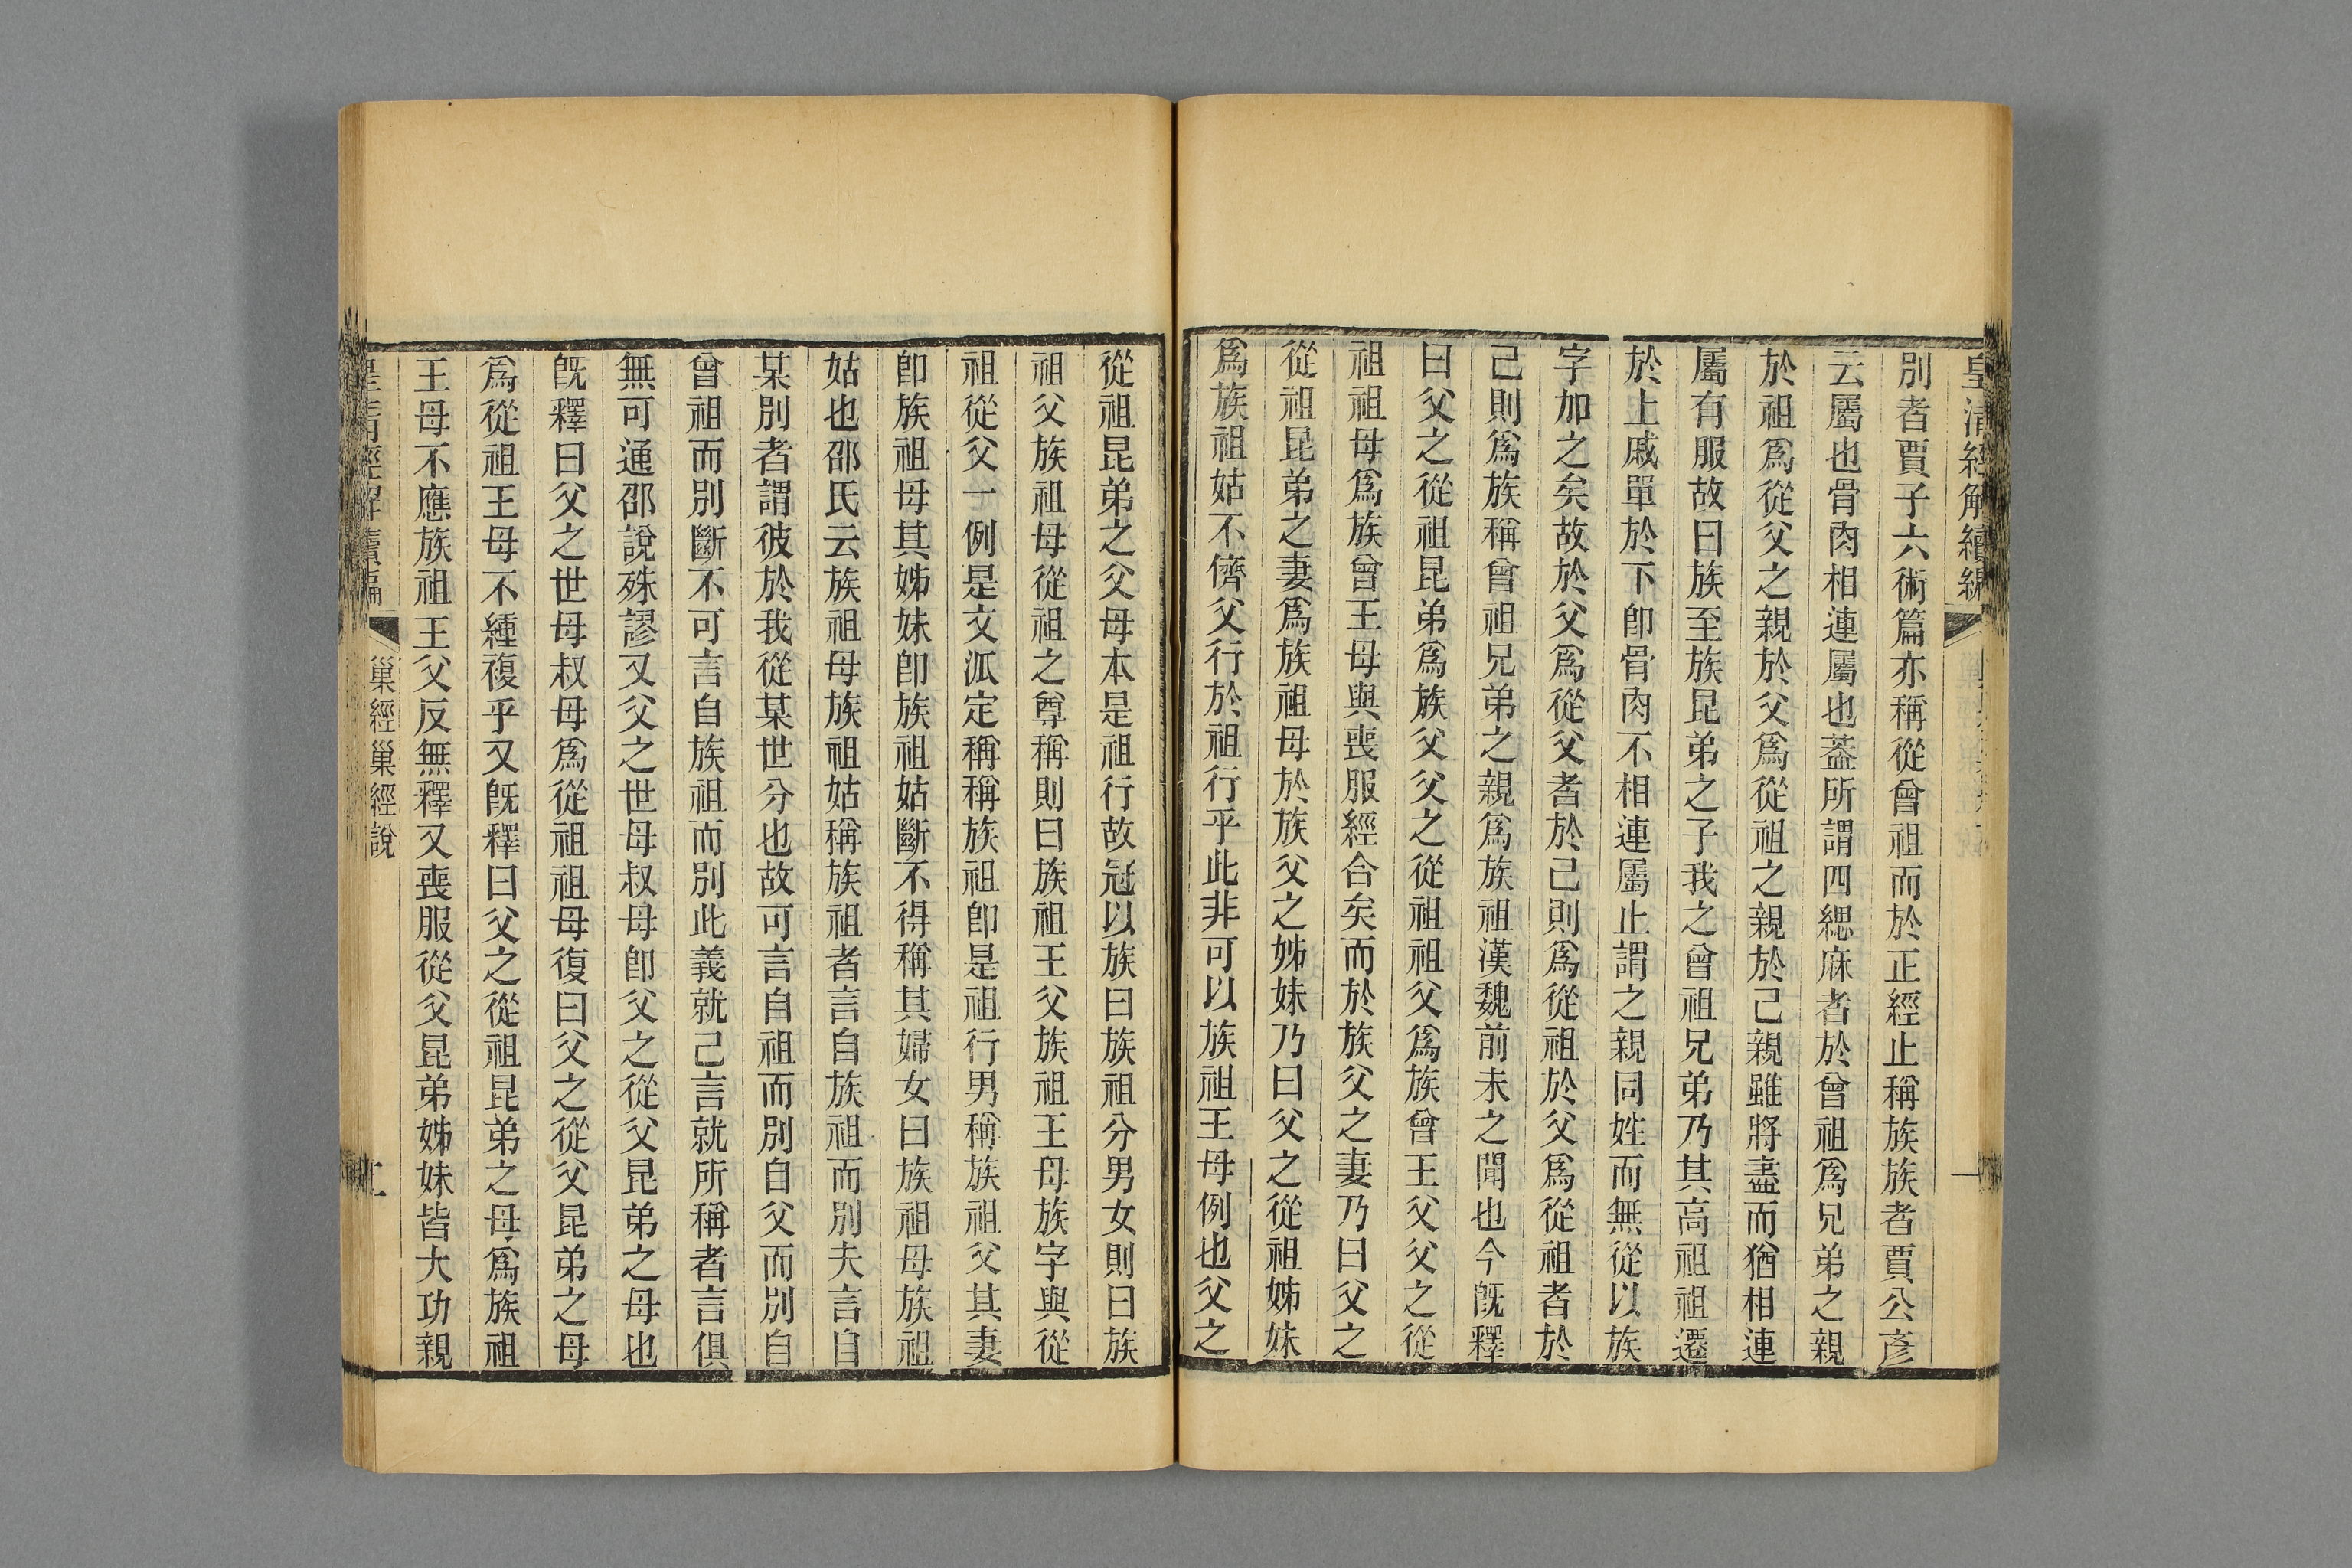 皇清經解續編
別者賈子六術篇亦稱從曾祖而於正經止稱族族者賈公彥
云屬也骨肉相連屬也葢所謂四緦麻者於曾祖爲兄弟之親
於祖爲從父之親於父爲從祖之親於己親雖將盡而猶相連
屬有服故曰族至族昆弟之子我之曾祖兄弟乃其高祖祖遷
於上戚單於下卽骨肉不相連屬止謂之親同姓而無從以族
字加之矣故於父爲從父者於己則爲從祖於父爲從祖者於
己則爲族稱曾祖兄弟之親爲族祖漢魏前未之聞也今旣釋
曰父之從祖昆弟爲族父父之從祖祖父爲族曾王父父之從
祖祖母爲族曾王母與喪服經合矣而於族父之妻乃曰父之
從祖昆弟之妻爲族祖母於族父之姊妹乃曰父之從祖姊妹
爲族祖姑不儕父行於祖行乎此非可以族祖王母例也父之
從祖昆弟之父母本是祖行故冠以族曰族祖分男女則曰族
祖父族祖母從祖之尊稱則曰族祖王父族祖王母族字與從
祖從父一例是文泒定稱稱族祖卽是祖行男稱族祖父其妻
卽族祖母其姊妹卽族祖姑斷不得稱其婦女曰族祖母族祖
姑也邵氏云族祖母族祖姑稱族祖者言自族祖而別夫言自
某別者謂彼於我從某世分也故可言自祖而別自父而別自
曾祖而別斷不可言自族祖而別此義就己言就所稱者言俱
無可通邵說殊謬又父之世母叔母卽父之從父昆弟之母也
旣釋曰父之世母叔母爲從祖祖母復曰父之從父昆弟之母
爲從祖王母不緟複乎又旣釋曰父之從祖昆弟之母爲族祖
王母不應族祖王父反無釋又喪服從父昆弟姊妹皆大功親
皇清經解續編
巢經巢經說